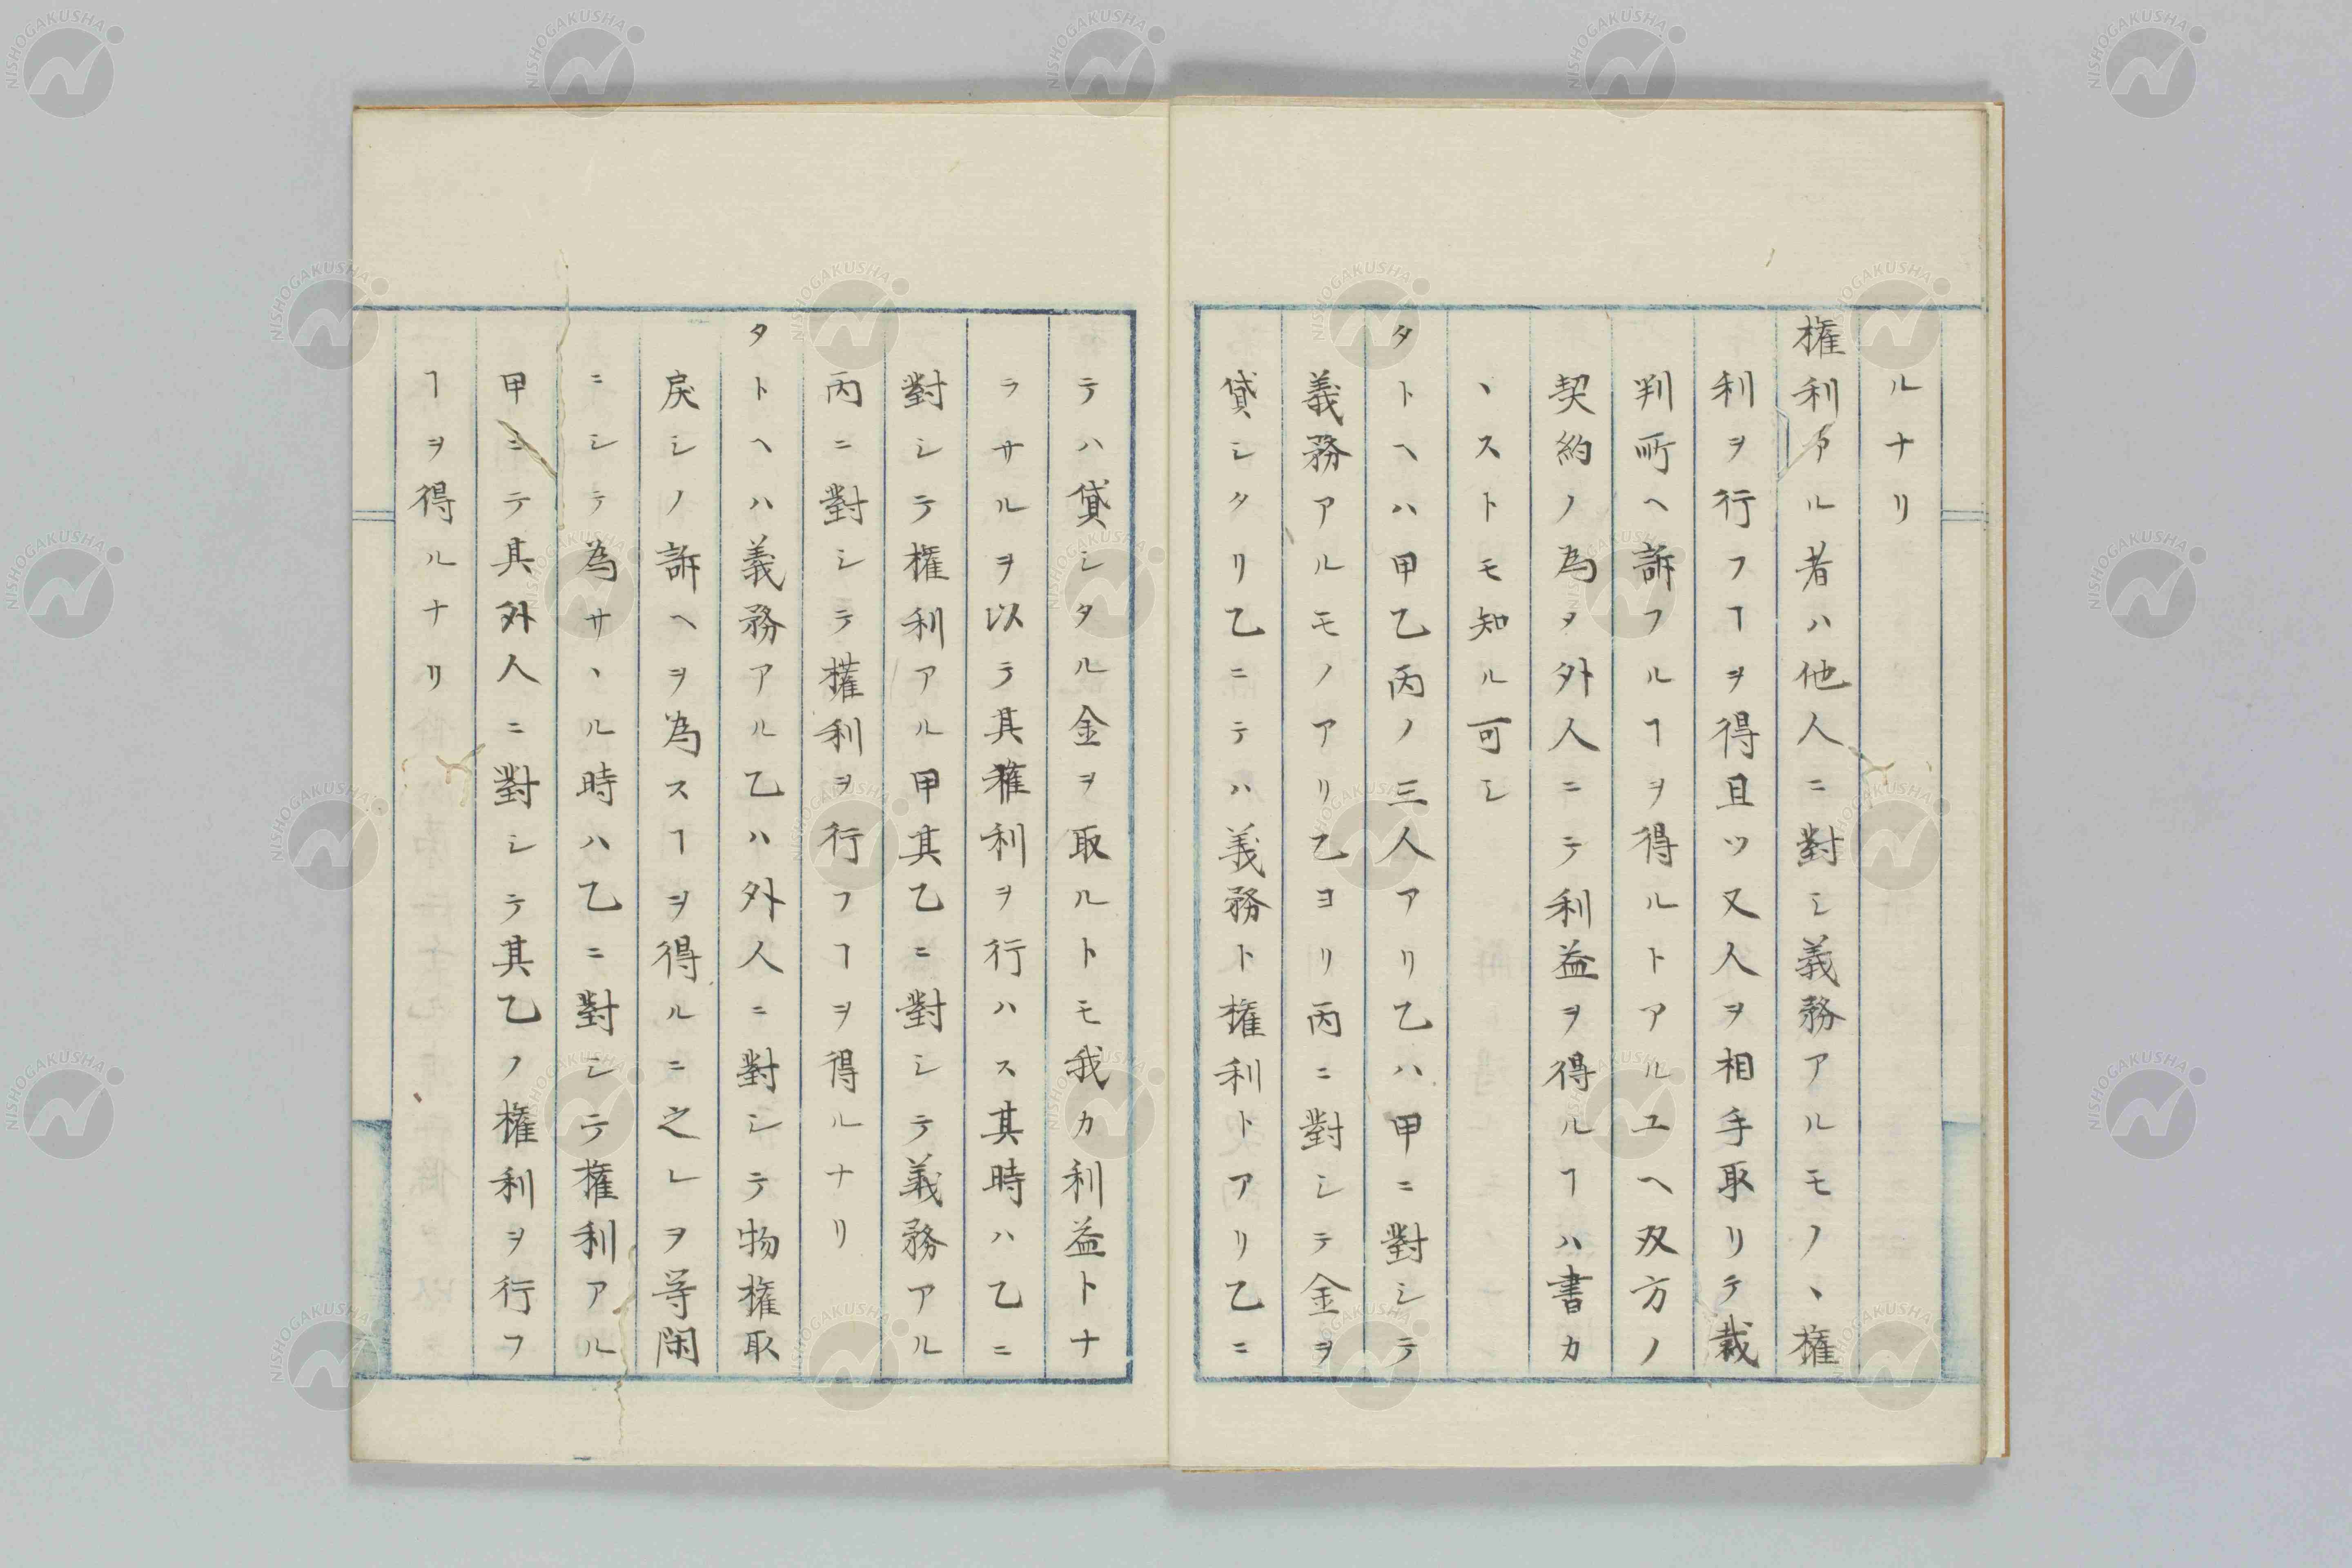 ルナリ
権利アル者ハ他人ニ對シ義務アルモノヽ権
利ヲ行フヿヲ得且ツ又人ヲ相手取リテ裁
判所ヘ訴フルヿヲ得ルトアルユヘ双方ノ
契約ノ為メ外人ニテ利益ヲ得ルヿハ書カ
ヽストモ知ル可シ
タトヘハ甲乙丙ノ三人アリ乙ハ甲ニ對シテ
義務アルモノアリ乙ヨリ丙ニ對シテ金ヲ
貸シタリ乙ニテハ義務ト権利トアリ乙ニ
テハ貸シタル金ヲ取ルトモ我カ利益トナ
ラサルヲ以テ其権利ヲ行ハス其時ハ乙ニ
對シテ権利アル甲其乙ニ對シテ義務アル
丙ニ對シテ権利ヲ行フヿヲ得ルナリ
タトヘハ義務アル乙ハ外人ニ對シテ物権取
戻シノ訴ヘヲ為スヿヲ得ルニ之レヲ等閑
ニシテ為サヽル時ハ乙ニ對シテ権利アル
甲ニテ其外人ニ對シテ其乙ノ権利ヲ行フ
ヿヲ得ルナリ
NISHOGAKUSHA